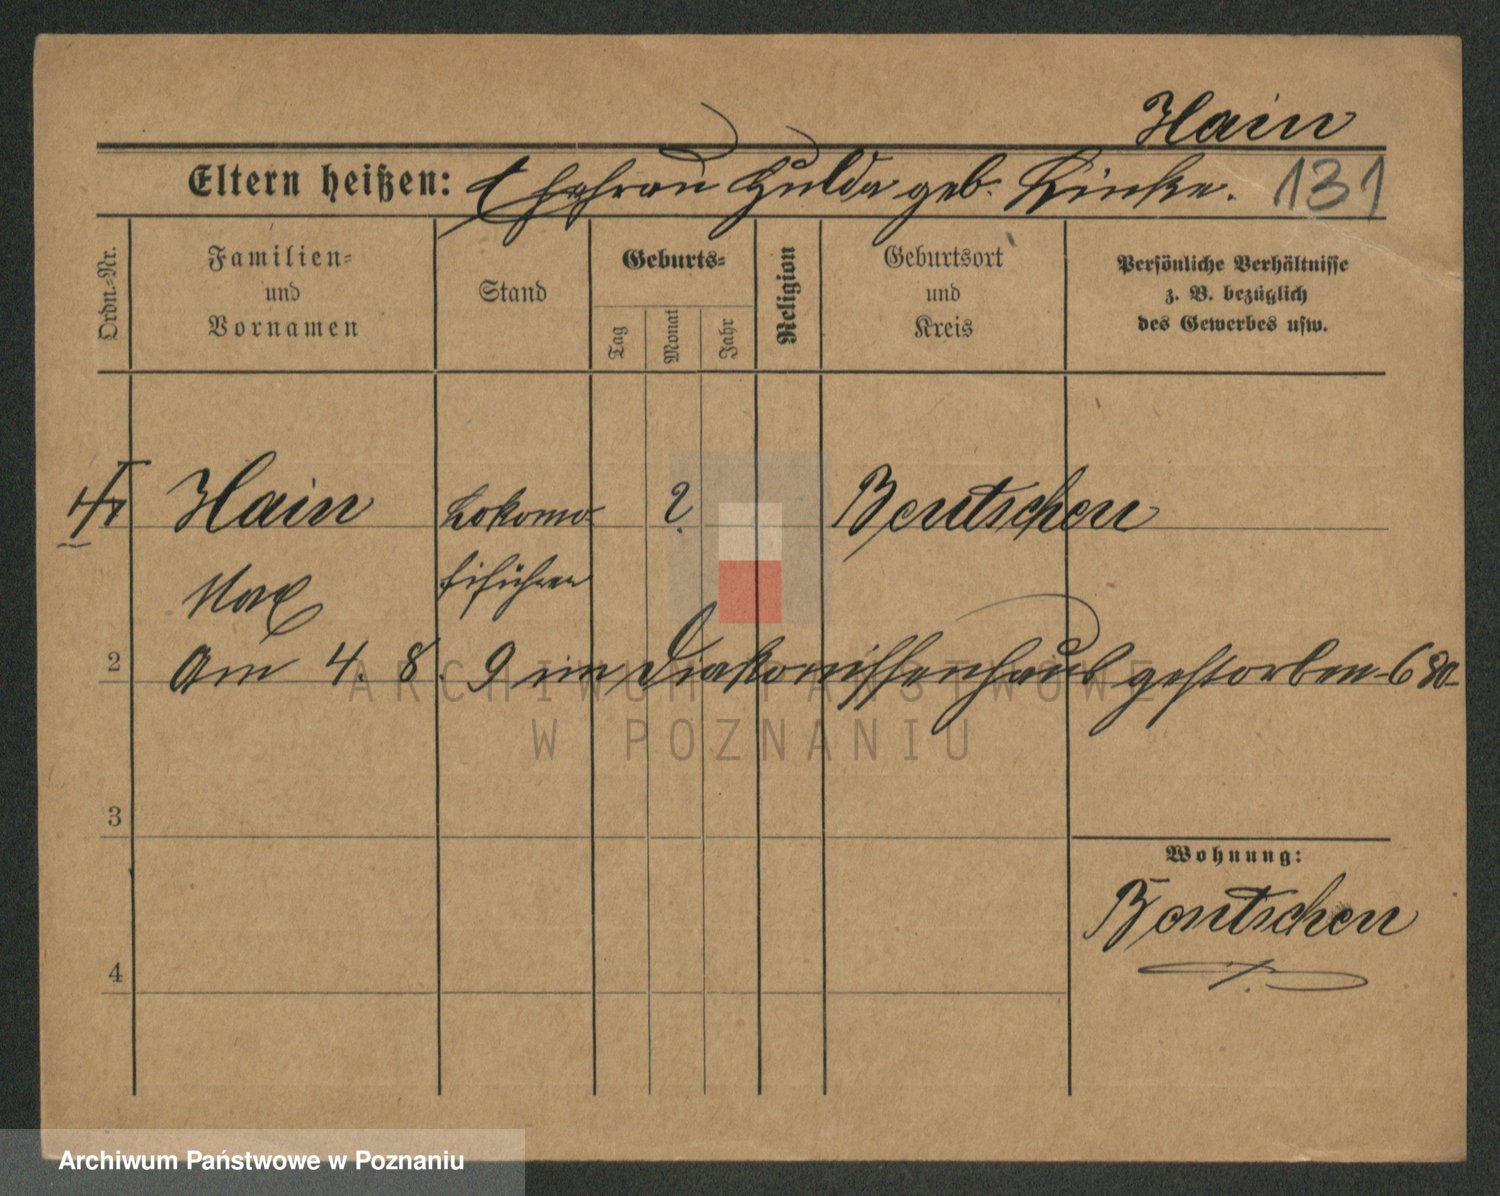 Hain
Eltern heißen: Ehefrau Hulda geb. Linke. 131
Ordn.-Nr.
Familien-
und
Vornamen
Stand
Geburts-
Tag
Monat
Jahr
Religion
Geburtsort
und
Kreis
Persönliche Verhältnisse
z. B. bezüglich
des Gewerbes usw.
Hain
Lokomo-
?
Bentschen
Max
tivführer
2
Am 4. 8. 9 im Diakonissenhaus gestorben - 680 -
ARCHIWUM PAŃSTWOWE
W POZNANIU
3
Wohnung:
Bentschen
4
Archiwum Państwowe w Poznaniu